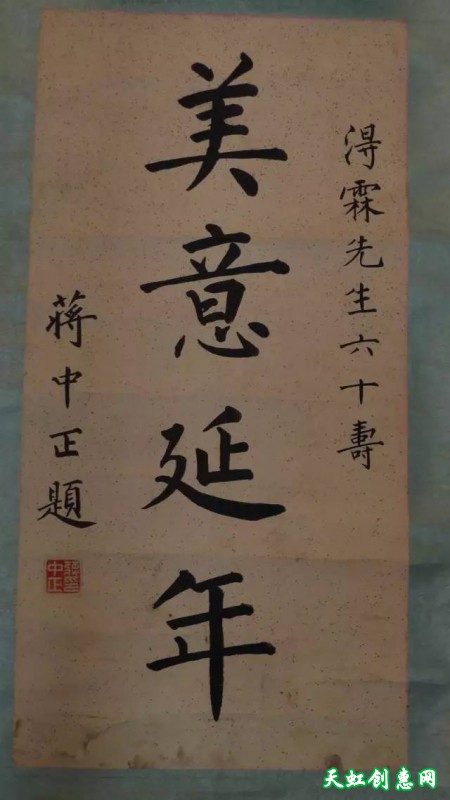 淂霖先生六十壽
美意延年
蔣中正題
中正
天虹创惠网